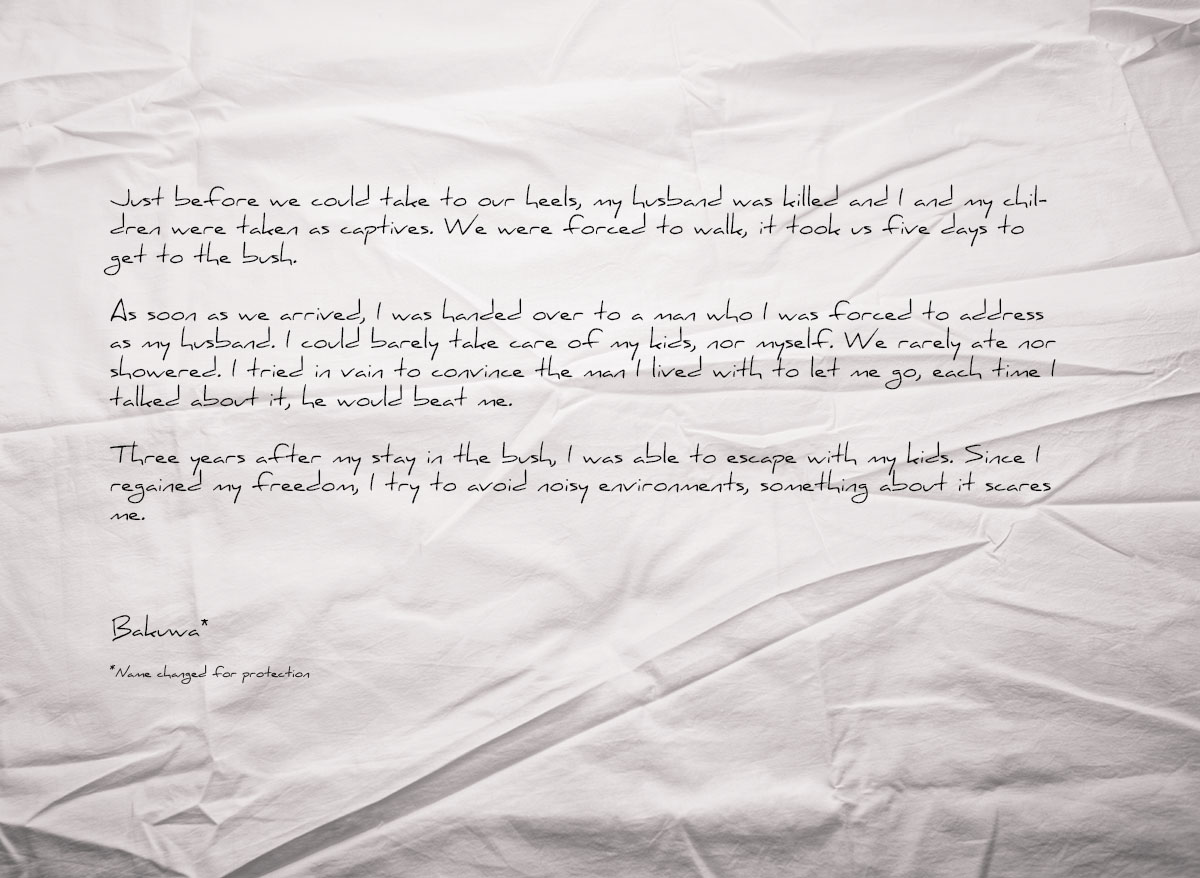 Just before we could take to our heels, my husband was killed and I and my chil-
dren were taken as captives. We were forced to walk, it took us five days to
get to the bush.
As soon as we arrived, I was handed over to a man who I was forced to address
as my husband. I could barely take care of my kids, nor myself. We rarely ate nor
showered. I tried in vain to convince the man I lived with to let me go, each time I
talked about it, he would beat me.
Three years after my stay in the bush, I was able to escape with my kids. Since I
regained my freedom, I try to avoid noisy environments, something about it scares
me.
Bakuwa*
*Name changed for protection